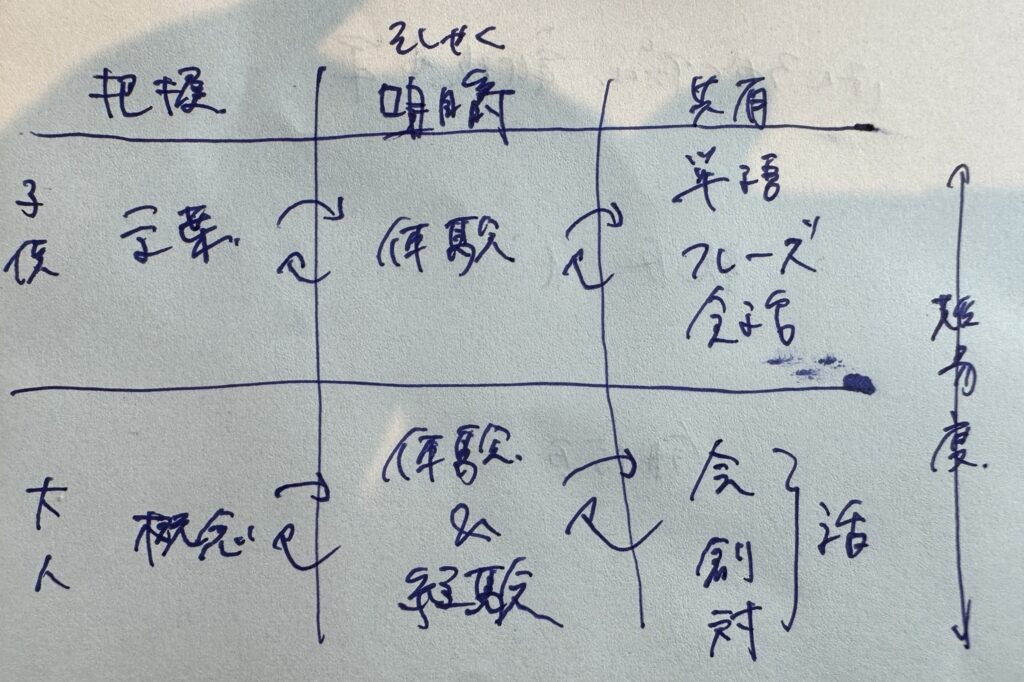 そしゃく
把握 咀嚼 共有
子供 言葉 体験 単語
フレーズ
会話
難易度
大人 概念 体験
&
経験
会
創
対
話